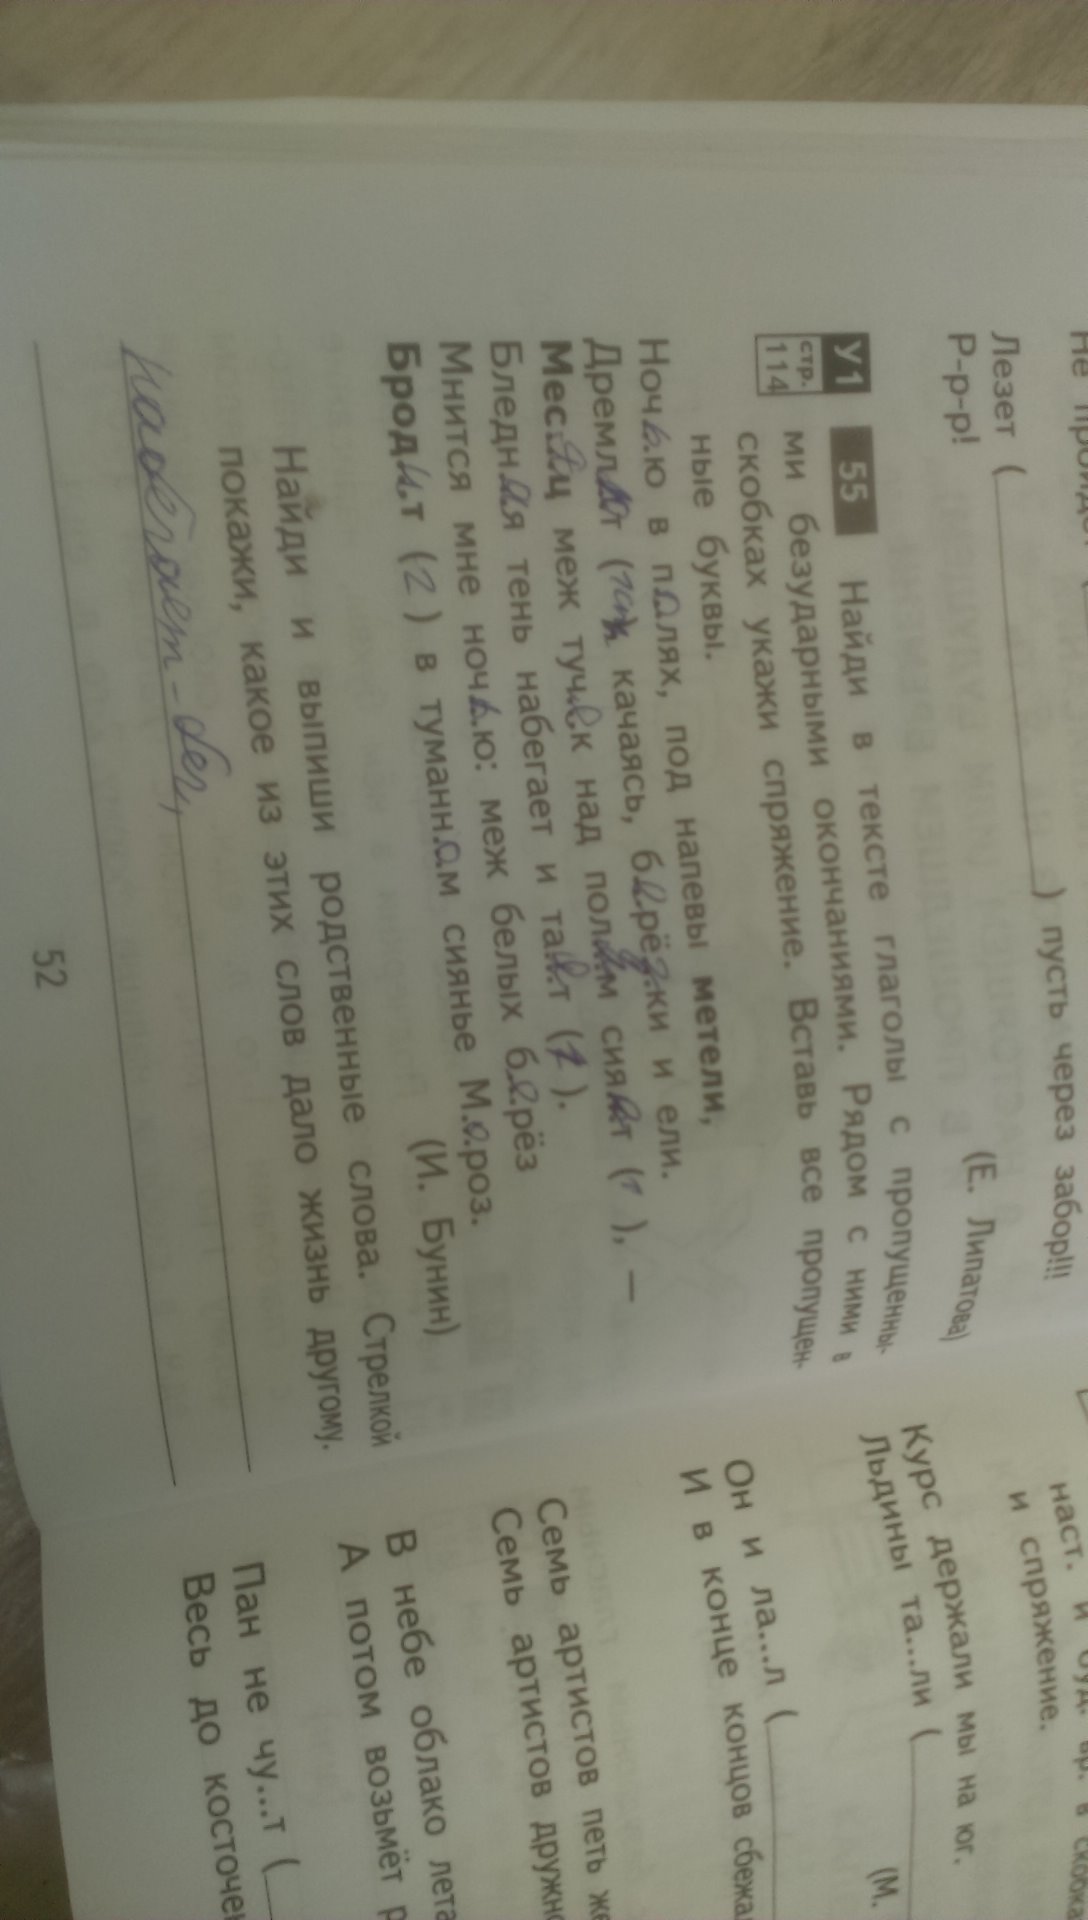 Лезет (
) пусть через забор!!!
Р-р-р!
(Е. Липатова)
У1
стр.
114
55 Найди в тексте глаголы с пропущенны-
ми безударными окончаниями. Рядом с ними в
скобках укажи спряжение. Вставь все пропущен-
ные буквы.
Ночь.ю в полях, под напевы метели,
Дремлют ( качаясь, берёз.ки и ели.
Месяц меж туч.ек над полем сияет (1), —
Бледная тень набегает и тает (1).
Мнится мне ночь.ю: меж белых берёз
Броди.т (2) в туманн.ом сиянье М.о.роз.
(И. Бунин)
Найди и выпиши родственные слова. Стрелкой
покажи, какое из этих слов дало жизнь другому.
набегает -
52
наст. и
и спряжение.
Курс держали мы на юг.
Льдины та...ли (
(М.
Он и ла...л (
И в конце концов сбежа
Семь артистов петь же
Семь артистов дружн
В небе облако лета
А потом возьмёт р
Пан не чу...т (
Весь до косточе